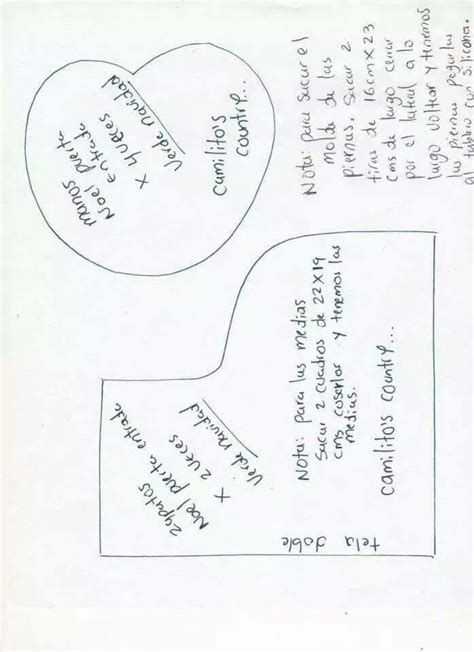 manos puerta
Noel
entrada
x 4 veces
Verde navidad
Camilito's
country...
Nota: para sacar el
molde de las
piernas. Sacar 2
tiras de 16cm x 23
cms de largo cerrar
por el lateral a lo
luego voltear y tenemos
las piernas pegarlas
al tablin con silicona.
Zapatos
Noel puerta entrada
x 2 veces
Verde navidad
Nota: para las medias
Sacar 2 cuadros de 22x19
cms coserlos y tenemos las
medias.
Camilito's country...
tela
doble